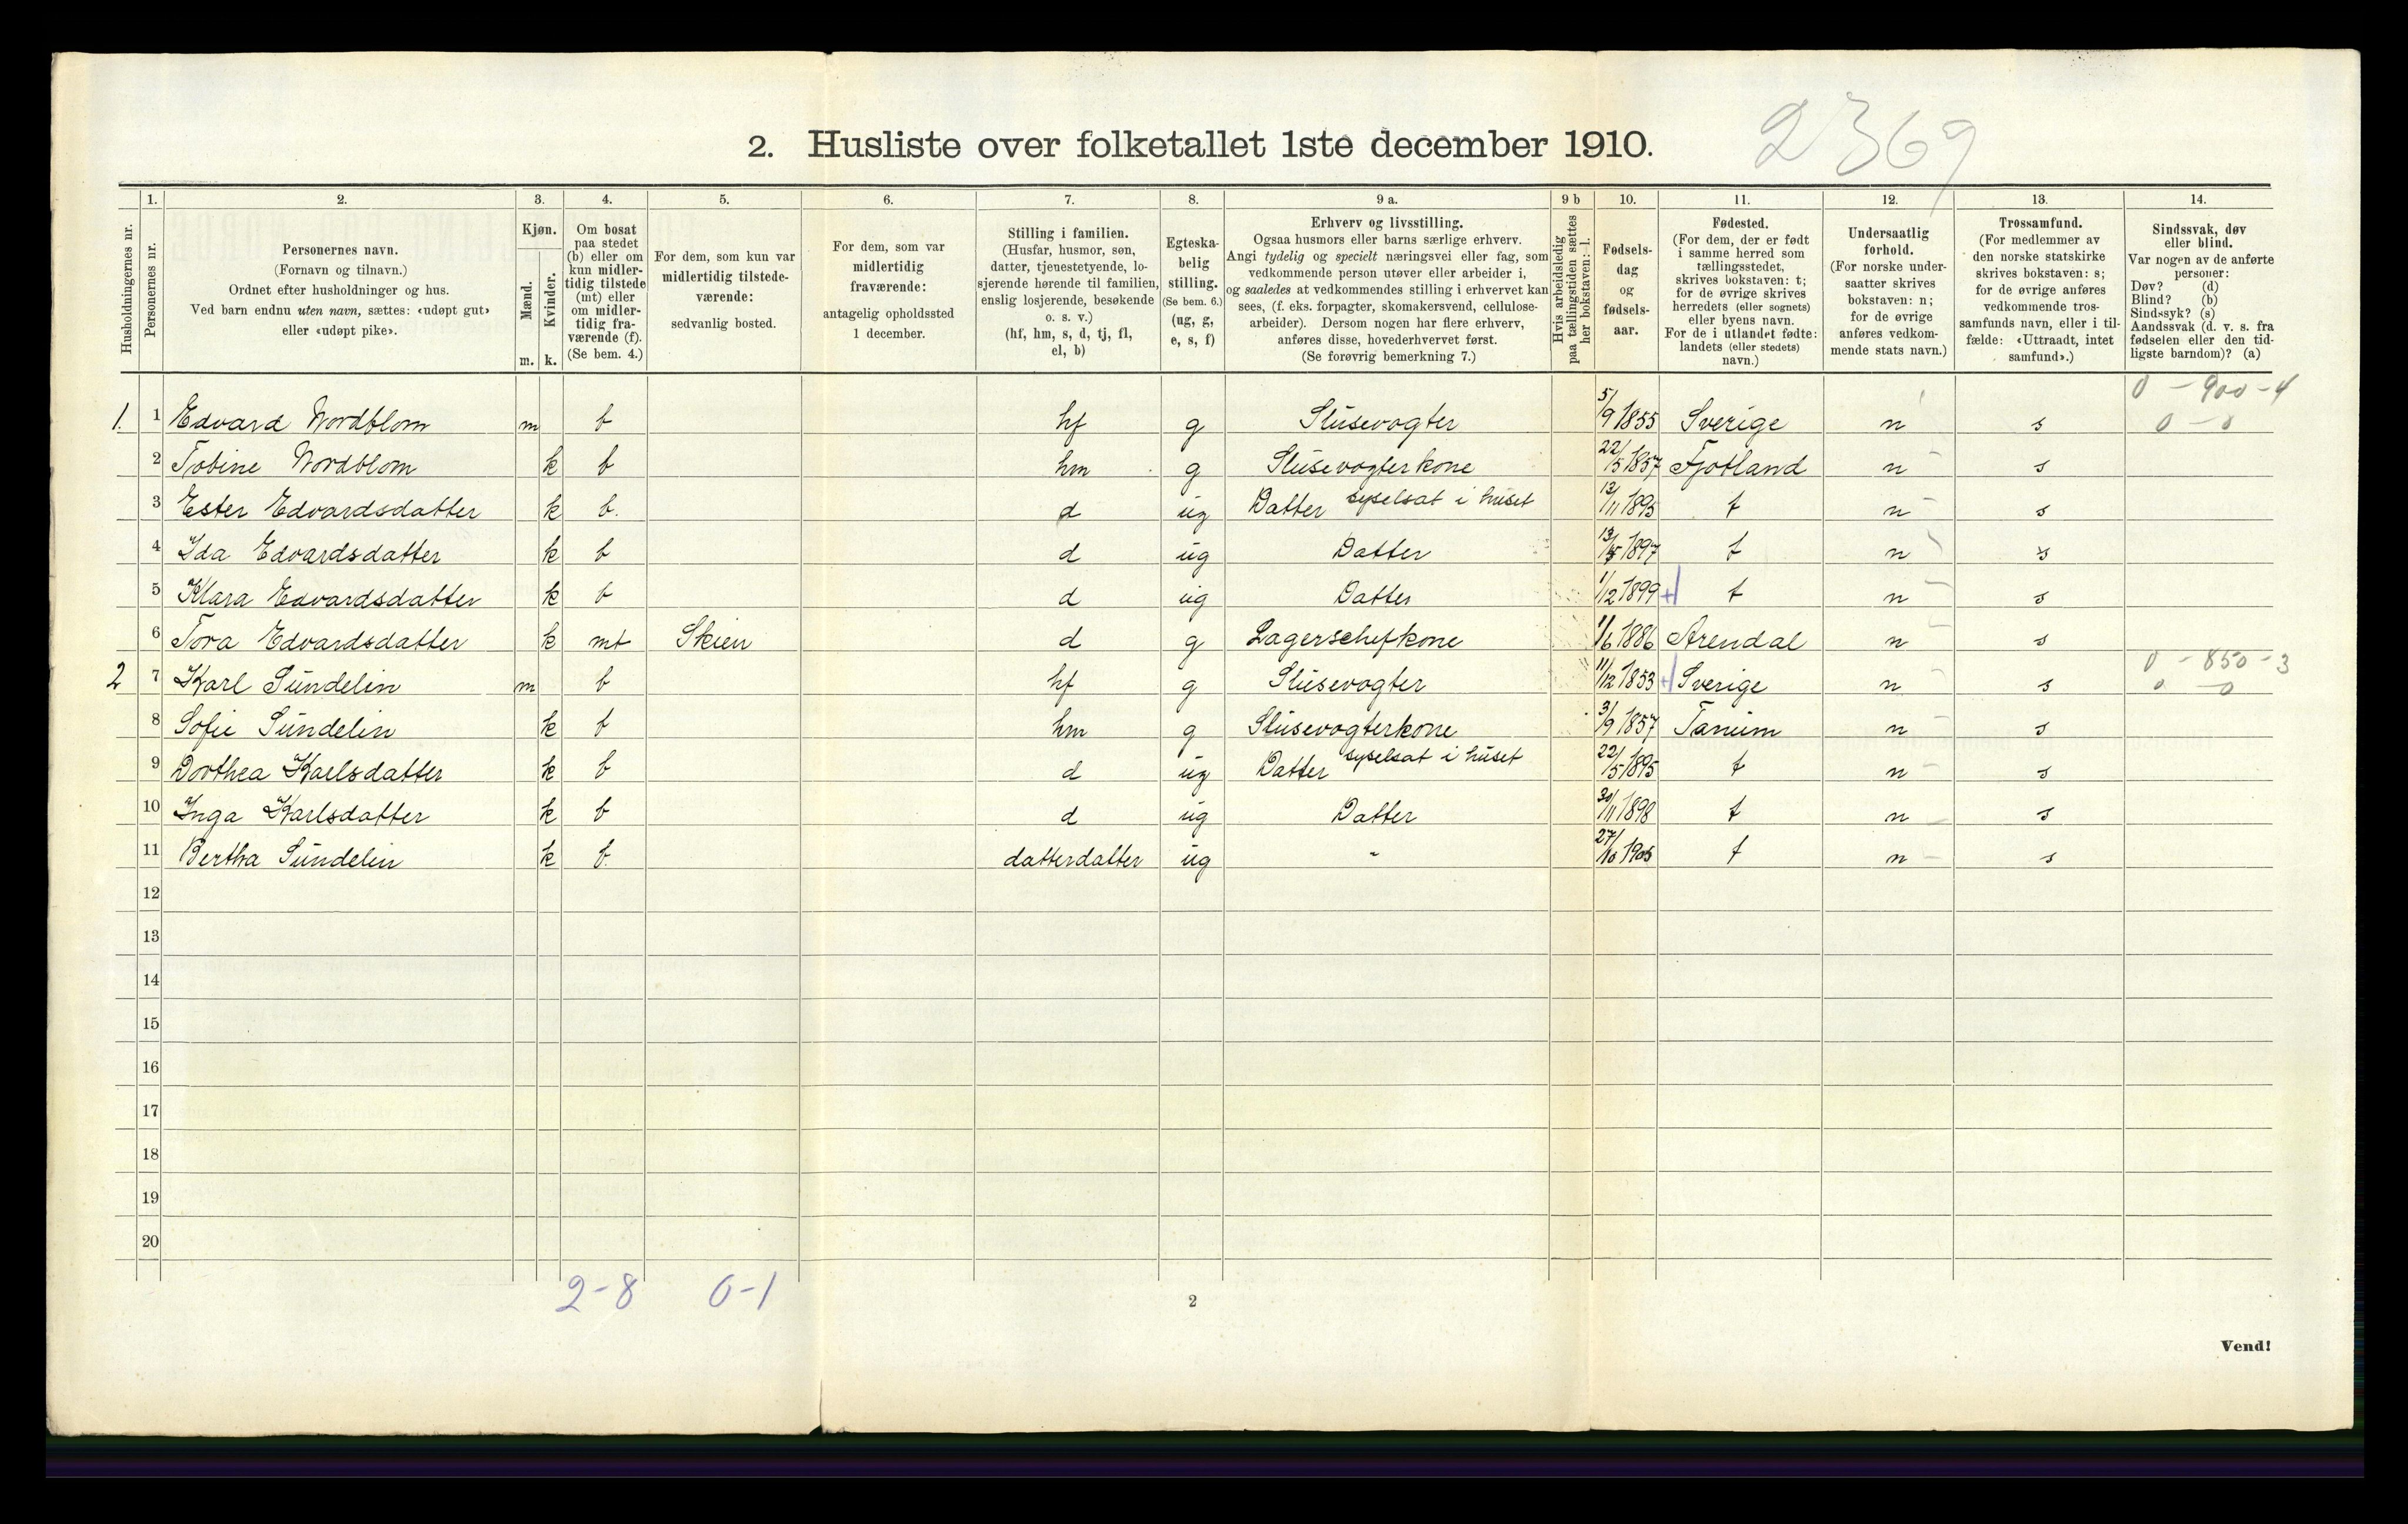 2369
2. Husliste over folketallet 1ste december 1910.
1. 2. 3. 4. 5. 6. 7. 8. 9 a. 9 b 10. 11. 12. 13. 14.
Husholdningernes nr.
Personernes nr.
Personernes navn.
(Fornavn og tilnavn.)
Ordnet efter husholdninger og hus.
Ved barn endnu uten navn, sættes: «udøpt gut»
eller «udøpt pike».
Kjøn.
Mænd.
Kvinder.
m. k.
Om bosat
paa stedet
(b) eller om
kun midler-
tidig tilstede
(mt) eller
om midler-
tidig fra-
værende (f).
(Se bem. 4.)
For dem, som kun var
midlertidig tilstede-
værende:
sedvanlig bosted.
For dem, som var
midlertidig
fraværende:
antagelig opholdssted
1 december.
Stilling i familien.
(Husfar, husmor, søn,
datter, tjenestetyende, lo-
sjerende hørende til familien,
enslig losjerende, besøkende
o. s. v.)
(hf, hm, s, d, tj, fl,
el, b)
Egteska-
belig
stilling.
(Se bem. 6.)
(ug, g,
e, s, f)
Erhverv og livsstilling.
Ogsaa husmors eller barns særlige erhverv.
Angi tydelig og specielt næringsvei eller fag, som
vedkommende person utøver eller arbeider i,
og saaledes at vedkommendes stilling i erhvervet kan
sees, (f. eks. forpagter, skomakersvend, cellulose-
arbeider). Dersom nogen har flere erhverv,
anføres disse, hovederhvervet først.
(Se forøvrig bemerkning 7.)
Hvis arbeidsledig
paa tællingstiden sættes
her bokstaven: l.
Fødsels-
dag
og
fødsels-
aar.
Fødested.
(For dem, der er født
i samme herred som
tællingsstedet,
skrives bokstaven: t;
for de øvrige skrives
herredets (eller sognets)
eller byens navn.
For de i utlandet fødte:
landets (eller stedets)
navn.)
Undersaatlig
forhold.
(For norske under-
saatter skrives
bokstaven: n;
for de øvrige
anføres vedkom-
mende stats navn.)
Trossamfund.
(For medlemmer av
den norske statskirke
skrives bokstaven: s;
for de øvrige anføres
vedkommende tros-
samfunds navn, eller i til-
fælde: «Uttraadt, intet
samfund».)
Sindssvak, døv
eller blind.
Var nogen av de anførte
personer:
Døv? (d)
Blind? (b)
Sindssyk? (s)
Aandssvak (d. v. s. fra
fødselen eller den tid-
ligste barndom)? (a)
0 - 900 - 4
1. 1 Edvard Nordblom m b hf g Slusevogter 5/9 1855 Sverige n s 0 - 0
2 Tobine Nordblom k b hm g Slusevogterkone 22/5 1857 Fjotland n s
3 Ester Edvardsdatter k b. d ug Datter syselsat i huset 13/11 1895 t n s
4 Ida Edvardsdatter k b d ug Datter 13/5 1897 t n s
5 Klara Edvardsdatter k b d ug Datter 1/12 1899 + t n s
6 Tora Edvardsdatter k mt Skien d g Lagerschefkone 1/6 1886 Arendal n s
0 - 850 - 3
2 7 Karl Sundelin m b hf g Slusevogter 11/12 1853 + Sverige n s 0 - 0
8 Sofie Sundelin k b hm g Slusevogterkone 3/9 1857 Tanum n s
9 Dorthea Karlsdatter k b d ug Datter syselsat i huset 22/5 1895 t n s
10 Inga Karlsdatter k b d ug Datter 30/11 1898 t n s
11 Bertha Sundelin k b. datterdatter ug " 27/10 1905 t n s
12
13
14
15
16
17
18
19
20
2-8 0-1
2
Vend!